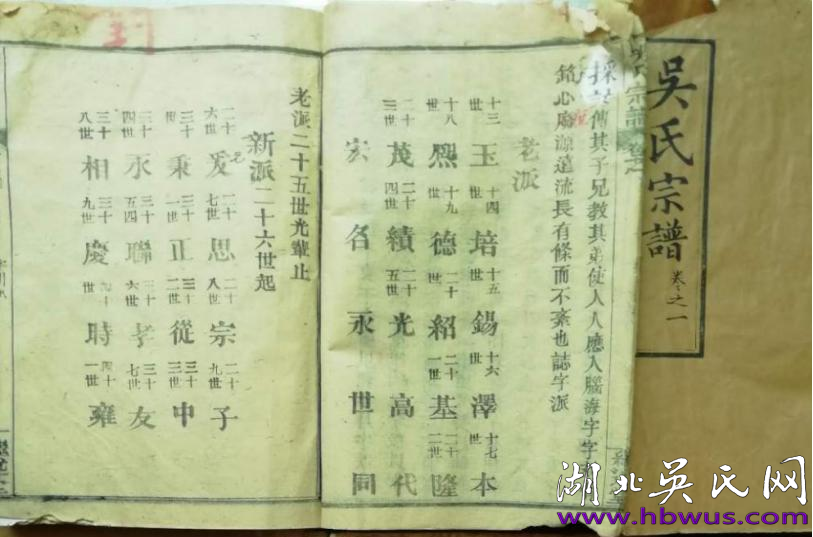 吳氏宗譜 卷之一
氏宗譜
傳其子兄教其弟使人人應入腦海字字
銘心庶源遠流長有條而不紊也誌字派
老派
十三世 玉 十四世 培 十五世 錫 十六世 澤 十七世 本
十八世 熈 十九世 德 二十世 紹 二十一世 基 二十二世 隆
二十三世 茂 二十四世 績 二十五世 光 高 代
宏 名 永 世 同
老派二十五世光輩止
新派二十六世起
二十六世 爰 二十七世 思 二十八世 宗 二十九世 子
三十世 秉 三十一世 正 三十二世 從 三十三世 中
三十四世 永 三十五世 聯 三十六世 孝 三十七世 友
三十八世 相 三十九世 慶 四十世 時 四十一世 雍
湖北吳氏网
www.hbwus.com